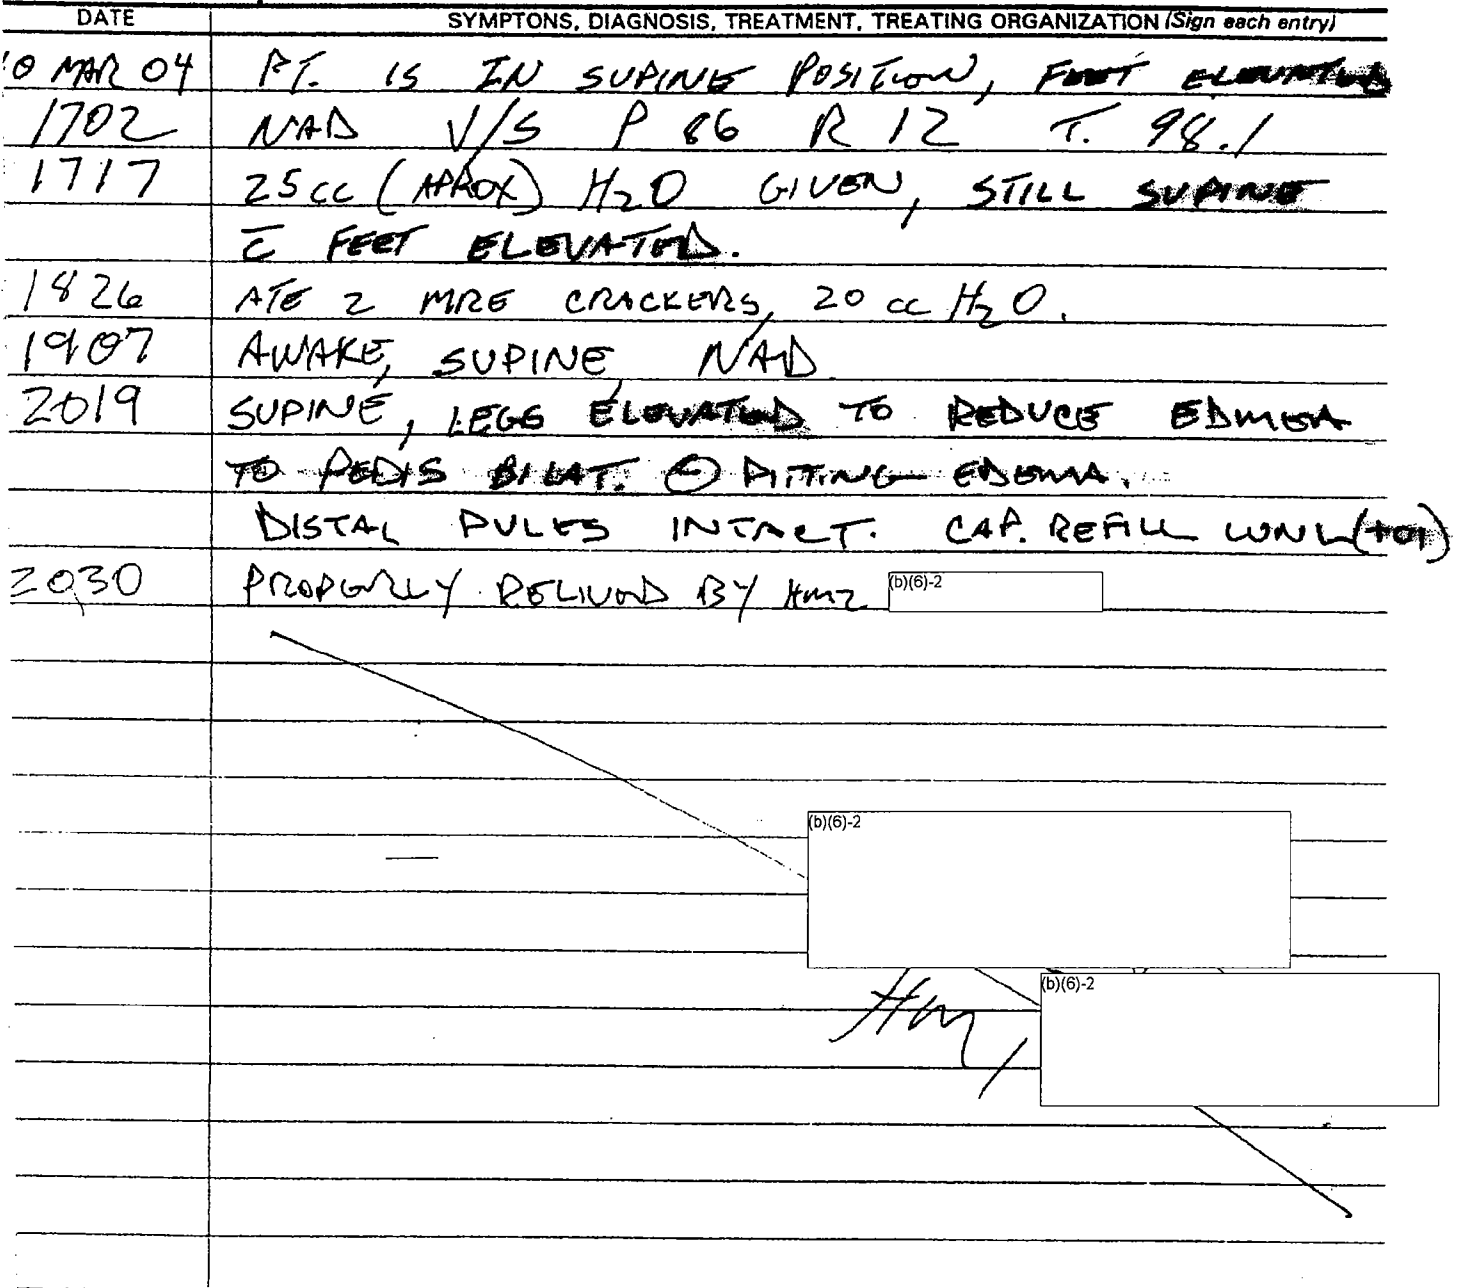 DATE SYMPTONS, DIAGNOSIS, TREATMENT, TREATING ORGANIZATION (Sign each entry)
10 MAR 04 PT. IS IN SUPINE POSITION, FEET ELEVATED
1702 NAD V/S P 86 R 12 T. 98.1
1717 25cc (APROX) H2O GIVEN, STILL SUPINE
c̄ FEET ELEVATED.
1826 ATE 2 MRE CRACKERS, 20 cc H2O.
1907 AWAKE, SUPINE, NAD
2019 SUPINE, LEGS ELEVATED TO REDUCE EDMEA
TO PEDIS BILAT. ⊖ PITTING EDEMA.
DISTAL PULES INTACT. CAP. REFILL WNL
2030 PROPERLY RELIVED BY HM2 (b)(6)-2
(b)(6)-2
(b)(6)-2